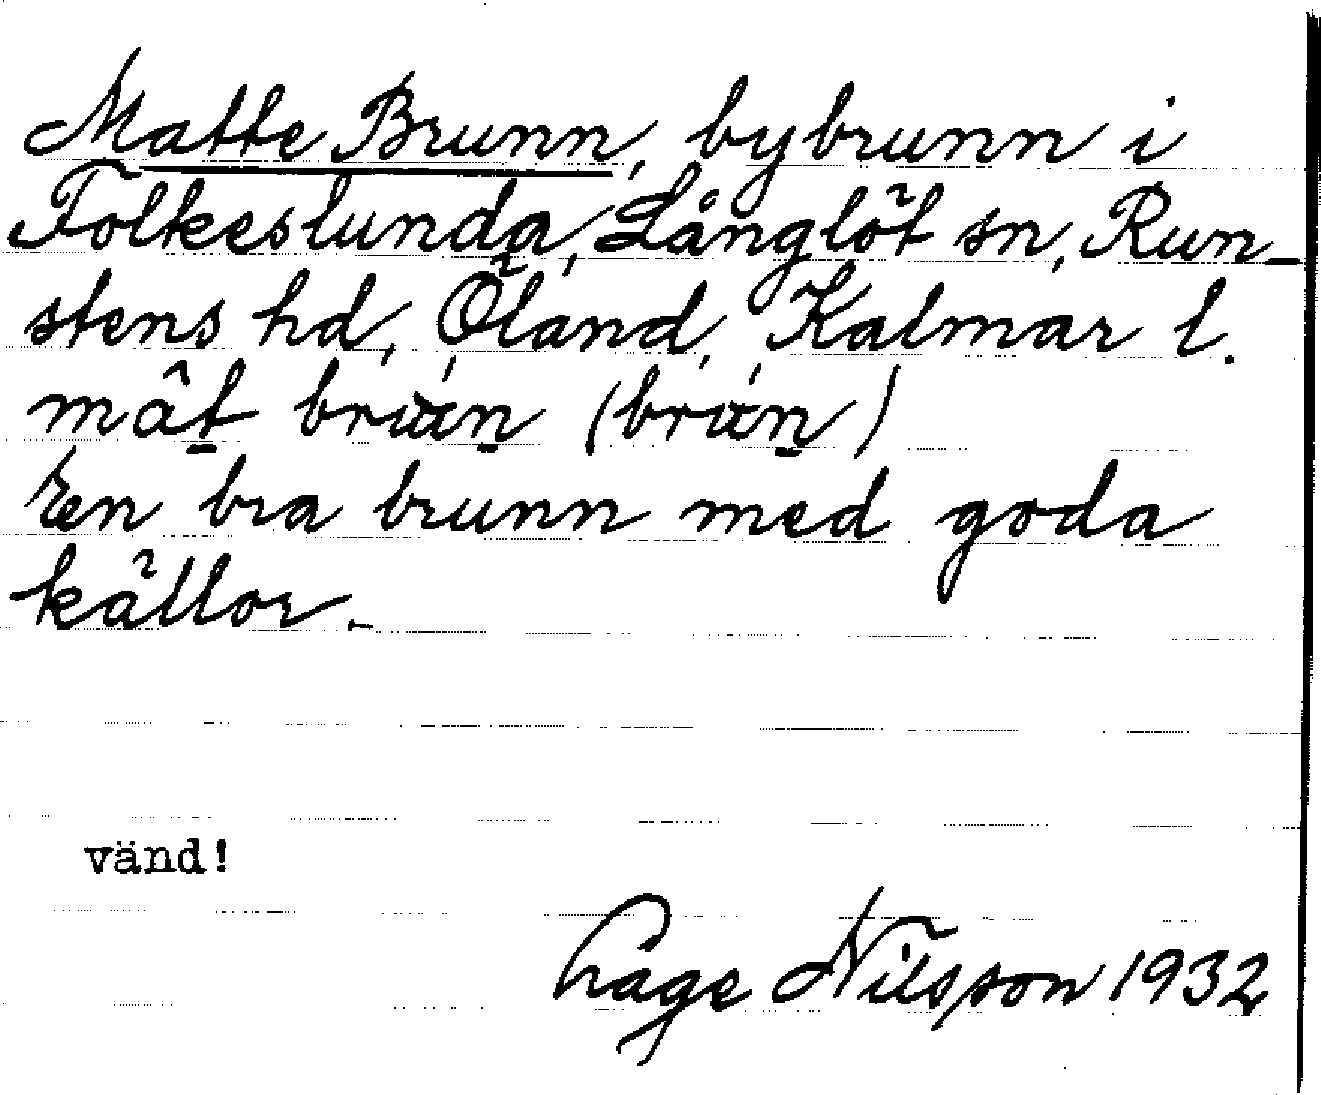 Matte Brunn, bybrunn i
Folkeslunda, Långlöt sn, Run-
stens hd, Öland, Kalmar l.
En bra brunn med goda
källor.
vänd!
Lage Nilsson 1932